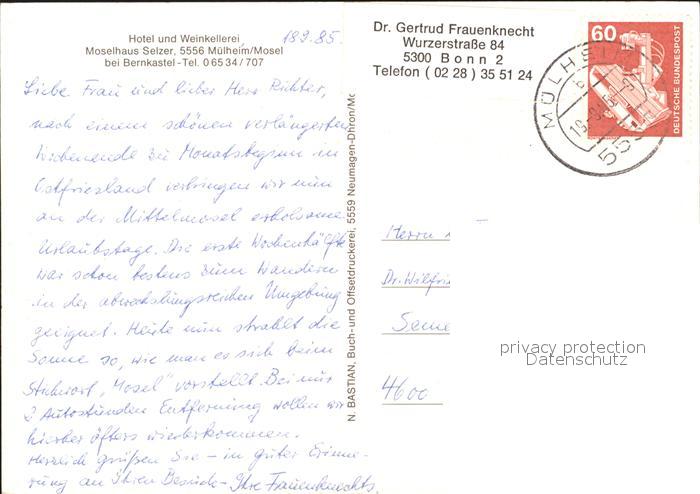 Hotel und Weinkellerei
Moselhaus Selzer, 5556 Mülheim/Mosel
bei Bernkastel - Tel. 0 65 34 / 707
18.9.85.
Liebe Frau und lieber Herr Richter,
nach einem schönen verlängerten
Wochenende zu Monatsbeginn in
Ostfriesland verbringen wir nun
an der Mittelmosel erholsame
Urlaubstage. Die erste Wochenhälfte
war schon bestens zum Wandern
in der abwechslungsreichen Umgebung
geeignet. Heute nun strahlt die
Sonne so, wie man es sich beim
Stichwort „Mosel" vorstellt. Bei nur
2 Autostunden Entfernung wollen wir
hierher öfters wiederkommen.
Herzlich grüßen Sie – in guter Erinne-
rung an Ihren Besuch – Ihre Frauenknechts.
N. BASTIAN, Buch- und Offsetdruckerei, 5559 Neumagen-Dhron/Mo
Dr. Gertrud Frauenknecht
Wurzerstraße 84
5300 Bonn 2
Telefon ( 02 28 ) 35 51 24
60
DEUTSCHE BUNDESPOST
MÜLHEI
555
Herrn
Dr. Wilfri
4600
privacy protection
Datenschutz